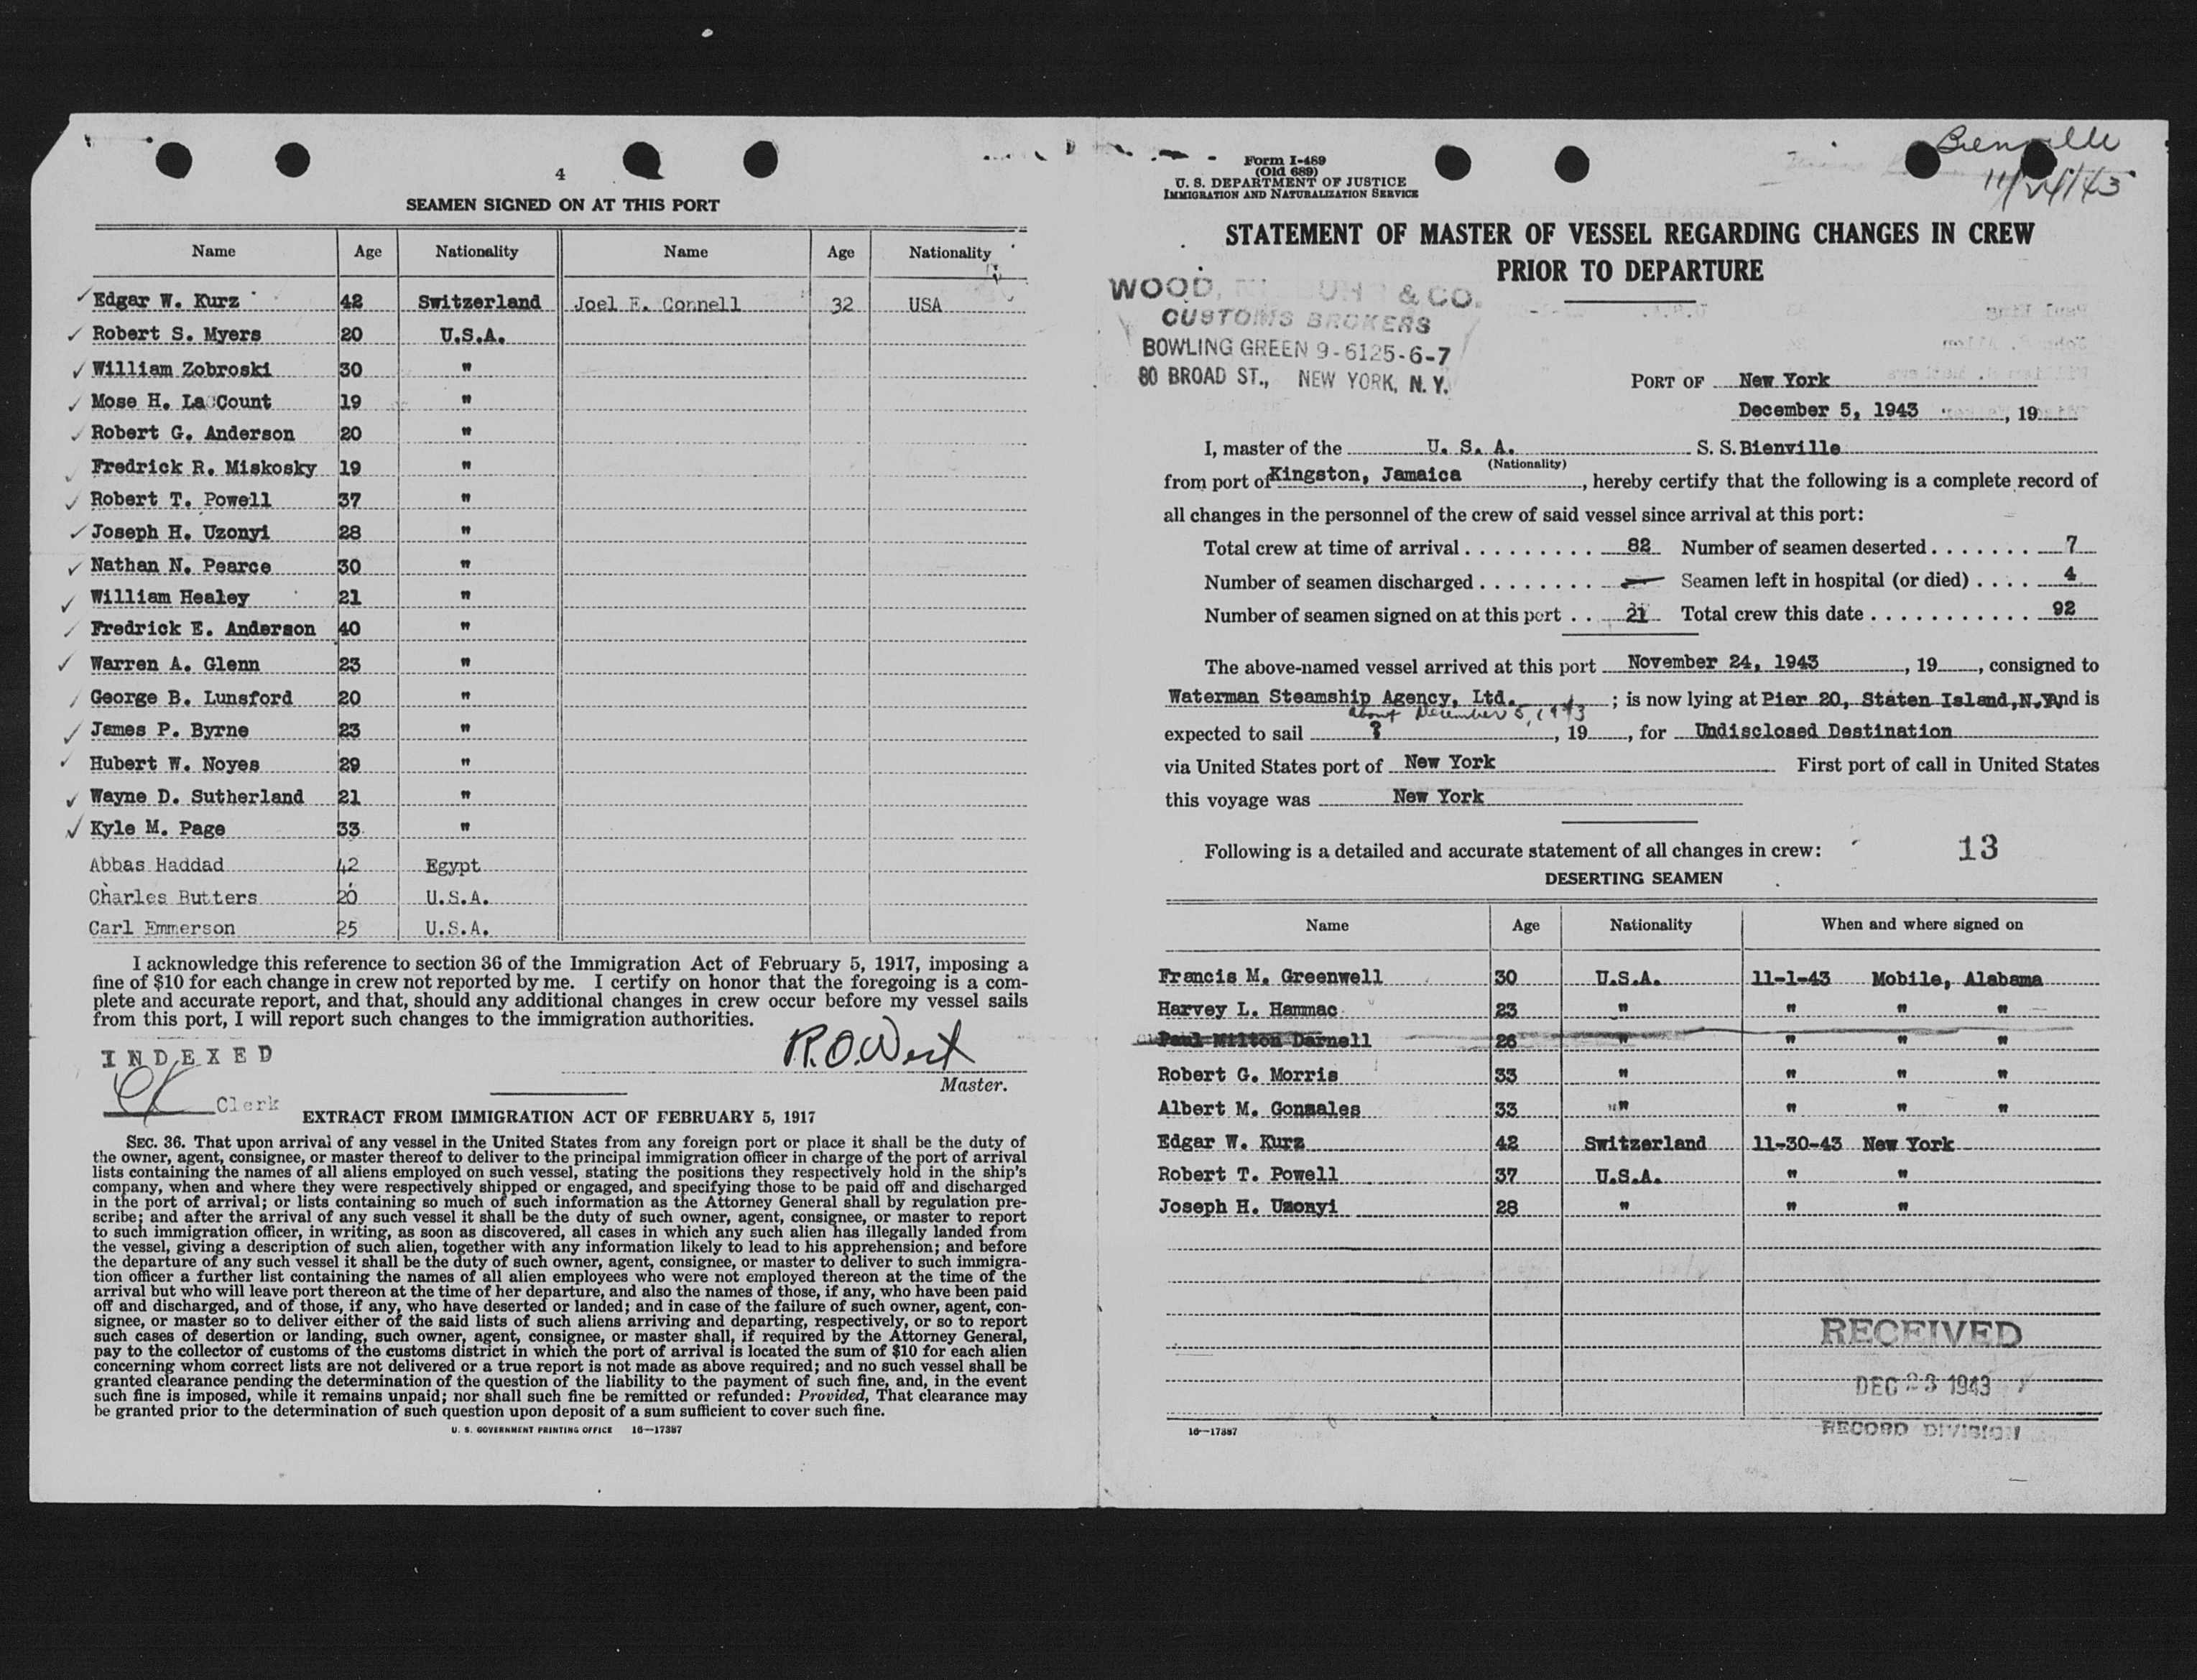 4
SEAMEN SIGNED ON AT THIS PORT
Name Age Nationality Name Age Nationality
Edgar W. Kurz 42 Switzerland Joel E. Connell 32 USA
Robert S. Myers 20 U.S.A.
William Zobroski 30 "
Mose H. La Count 19 "
Robert G. Anderson 20 "
Fredrick R. Miskosky 19 "
Robert T. Powell 37 "
Joseph H. Uzonyi 28 "
Nathan N. Pearce 30 "
William Healey 21 "
Fredrick E. Anderson 40 "
Warren A. Glenn 23 "
George B. Lunsford 20 "
James P. Byrne 23 "
Hubert W. Noyes 29 "
Wayne D. Sutherland 21 "
Kyle M. Page 33 "
Abbas Haddad 42 Egypt
Charles Butters 20 U.S.A.
Carl Emmerson 25 U.S.A.
I acknowledge this reference to section 36 of the Immigration Act of February 5, 1917, imposing a
fine of $10 for each change in crew not reported by me. I certify on honor that the foregoing is a com-
plete and accurate report, and that, should any additional changes in crew occur before my vessel sails
from this port, I will report such changes to the immigration authorities.
INDEXED
R.O. West
Master.
Clerk
EXTRACT FROM IMMIGRATION ACT OF FEBRUARY 5, 1917
SEC. 36. That upon arrival of any vessel in the United States from any foreign port or place it shall be the duty of
the owner, agent, consignee, or master thereof to deliver to the principal immigration officer in charge of the port of arrival
lists containing the names of all aliens employed on such vessel, stating the positions they respectively hold in the ship's
company, when and where they were respectively shipped or engaged, and specifying those to be paid off and discharged
in the port of arrival; or lists containing so much of such information as the Attorney General shall by regulation pre-
scribe; and after the arrival of any such vessel it shall be the duty of such owner, agent, consignee, or master to report
to such immigration officer, in writing, as soon as discovered, all cases in which any such alien has illegally landed from
the vessel, giving a description of such alien, together with any information likely to lead to his apprehension; and before
the departure of any such vessel it shall be the duty of such owner, agent, consignee, or master to deliver to such immigra-
tion officer a further list containing the names of all alien employees who were not employed thereon at the time of the
arrival but who will leave port thereon at the time of her departure, and also the names of those, if any, who have been paid
off and discharged, and of those, if any, who have deserted or landed; and in case of the failure of such owner, agent, con-
signee, or master so to deliver either of the said lists of such aliens arriving and departing, respectively, or so to report
such cases of desertion or landing, such owner, agent, consignee, or master shall, if required by the Attorney General,
pay to the collector of customs of the customs district in which the port of arrival is located the sum of $10 for each alien
concerning whom correct lists are not delivered or a true report is not made as above required; and no such vessel shall be
granted clearance pending the determination of the question of the liability to the payment of such fine, and, in the event
such fine is imposed, while it remains unpaid; nor shall such fine be remitted or refunded: Provided, That clearance may
be granted prior to the determination of such question upon deposit of a sum sufficient to cover such fine.
U. S. GOVERNMENT PRINTING OFFICE 16—17387
Bienville
11/24/43
Form I-489
(Old 689)
U. S. DEPARTMENT OF JUSTICE
IMMIGRATION AND NATURALIZATION SERVICE
STATEMENT OF MASTER OF VESSEL REGARDING CHANGES IN CREW
PRIOR TO DEPARTURE
WOOD, & CO.
CUSTOMS BROKERS
BOWLING GREEN 9-6125-6-7
80 BROAD ST., NEW YORK, N. Y.
PORT OF New York
December 5, 1943, 19
I, master of the U. S. A. S. S. Bienville
(Nationality)
from port of Kingston, Jamaica, hereby certify that the following is a complete record of
all changes in the personnel of the crew of said vessel since arrival at this port:
Total crew at time of arrival . . . . . . . . . . 82 Number of seamen deserted . . . . . . . 7
Number of seamen discharged . . . . . . . . — Seamen left in hospital (or died) . . . . 4
Number of seamen signed on at this port . . 21 Total crew this date . . . . . . . . . . . . 92
The above-named vessel arrived at this port November 24, 1943, 19, consigned to
Waterman Steamship Agency, Ltd. ; is now lying at Pier 20, Staten Island, N.Y. and is
about December 5, 1943
expected to sail ?, 19, for Undisclosed Destination
via United States port of New York First port of call in United States
this voyage was New York
Following is a detailed and accurate statement of all changes in crew: 13
DESERTING SEAMEN
Name Age Nationality When and where signed on
Francis M. Greenwell 30 U.S.A. 11-1-43 Mobile, Alabama
Harvey L. Hammac 23 " " " "
Paul Milton Darnell 26 " " " "
Robert G. Morris 33 " " " "
Albert M. Gonzales 33 " " " "
Edgar W. Kurz 42 Switzerland 11-30-43 New York
Robert T. Powell 37 U.S.A. " "
Joseph H. Uzonyi 28 " " "
RECEIVED
DEC 23 1943
RECORD DIVISION
16—17387